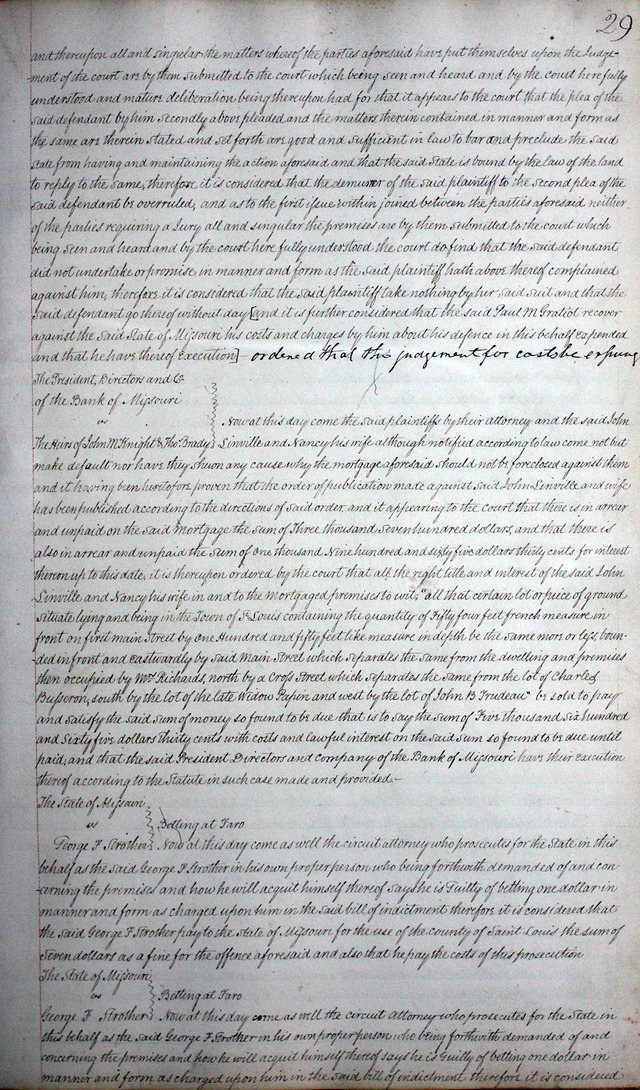 29
and thereupon all and singular the matters whereof the parties aforesaid have put themselves upon the Judge-
ment of the court are by them submitted to the court which being seen and heard and by the court here fully
understood and mature deliberation being thereupon had for that it appears to the court that the plea of the
said defendant by him Secondly above pleaded and the matters therein contained in manner and form as
the same are therein stated and set forth are good and sufficient in law to bar and preclude the said
State from having and maintaining the action aforesaid and that the said State is bound by the law of the land
to reply to the same, therefore it is considered that the demurrer of the said plaintiff to the second plea of the
said defendant be overruled, and as to the first issue within joined between the parties aforesaid neither
of the parties requiring a Jury all and singular the premises are by them submitted to the court which
being seen and heard and by the court here fully understood the court do find that the said defendant
did not undertake or promise in manner and form as the said plaintiff hath above thereof complained
against him, therefore it is considered that the said plaintiff take nothing by her said suit and that the
said defendant go thereof without day [and it is further considered that the said Paul M Gratiot recover
against the said State of Missouri his costs and charges by him about his defence in this behalf expended
and that he have thereof execution] ordered that this judgement for costs be expung
The President, Directors and Co
of the Bank of Missouri
vs Now at this day come the said plaintiffs by their attorney and the said John
The Heirs of John McKnight & Tho. Brady Linville and Nancy his wife although notified according to law come not but
make default nor have they shewn any cause why the mortgage aforesaid should not be foreclosed against them
and it having been heretofore proven that the order of publication made against said John Linville and wife
has been published according to the directions of said order and it appearing to the court that there is in arrear
and unpaid on the said Mortgage the sum of Three thousand seven hundred dollars, and that there is
also in arrear and unpaid the sum of one thousand Nine hundred and sixty five dollars thirty cents for interest
thereon up to this date, it is thereupon ordered by the court that all the right title and interest of the said John
Linville and Nancy his wife in and to the Mortgaged premises to wit, "all that certain lot or piece of ground
situate lying and being in the Town of St Louis containing the quantity of Fifty four feet french measure in
front on first main Street by One Hundred and fifty feet like measure in depth be the same more or less, boun-
ded in front and eastwardly by said Main Street which separates the same from the dwelling and premises
then occupied by Wm Richards, north by a Cross Street which separates the same from the lot of Charles
Busseron, south by the lot of the late Widow Papin and west by the lot of John B Trudeau" be sold to pay
and satisfy the said sum of money so found to be due that is to say the sum of Five thousand six hundred
and Sixty five dollars thirty cents with costs and lawful interest on the said sum so found to be due until
paid, and that the said President Directors and company of the Bank of Missouri have their execution
thereof according to the Statute in such case made and provided
The State of Missouri
vs Betting at Faro
George F Strother Now at this day come as well the circuit attorney who prosecutes for the State in this
behalf as the said George F Strother in his own proper person who being forthwith demanded of and con-
cerning the premises and how he will acquit himself thereof says he is Guilty of betting one dollar in
manner and form as charged upon him in the said bill of indictment therefore it is considered that
the said George F Strother pay to the State of Missouri for the use of the county of Saint Louis the sum of
Seven dollars as a fine for the offence aforesaid and also that he pay the costs of this prosecution
The State of Missouri
vs Betting at Faro
George F Strother Now at this day come as well the circuit attorney who prosecutes for the State in
this behalf as the said George F Strother in his own proper person who being forthwith demanded of and
concerning the premises and how he will acquit himself thereof says he is guilty of betting one dollar in
manner and form as charged upon him in the said bill of indictment therefore it is considered